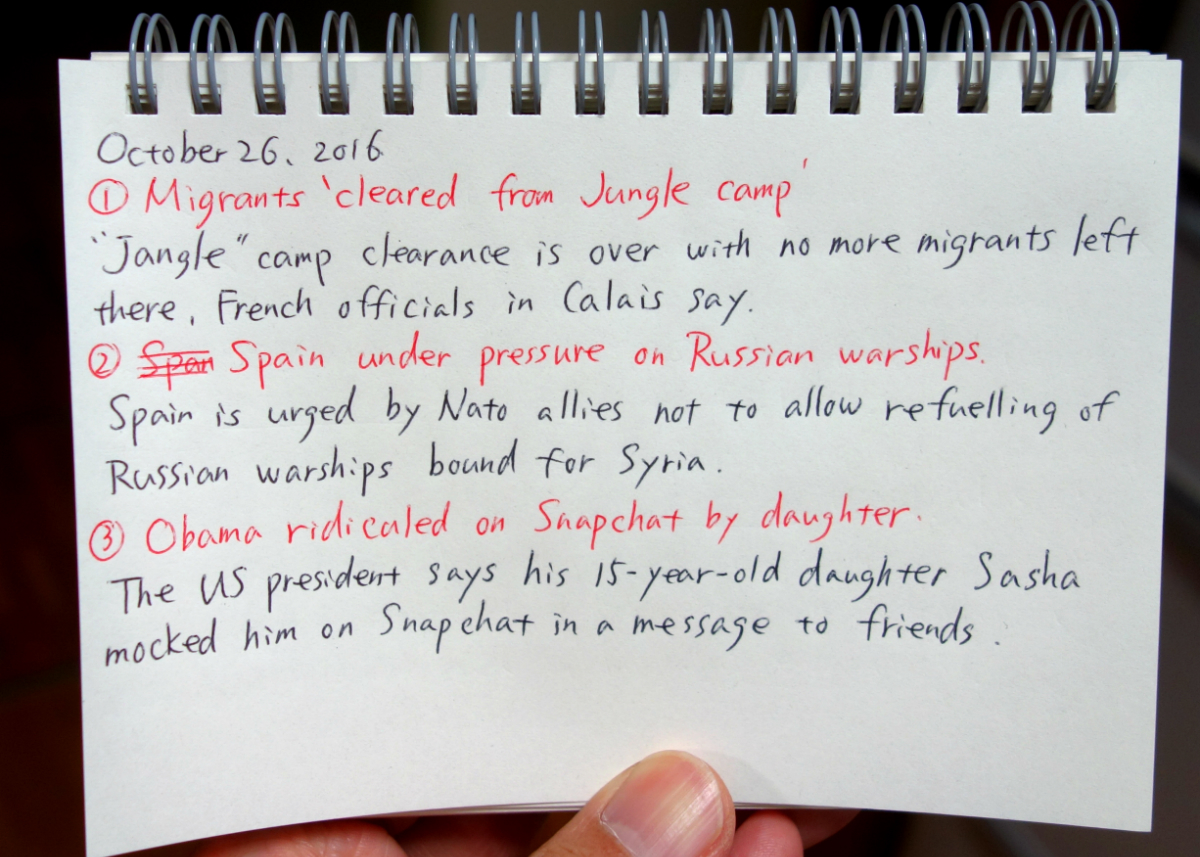 October 26, 2016
① Migrants 'cleared from Jungle camp'
"Jangle" camp clearance is over with no more migrants left
there, French officials in Calais say.
② Span Spain under pressure on Russian warships.
Spain is urged by Nato allies not to allow refuelling of
Russian warships bound for Syria.
③ Obama ridicaled on Snapchat by daughter.
The US president says his 15-year-old daughter Sasha
mocked him on Snapchat in a message to friends.